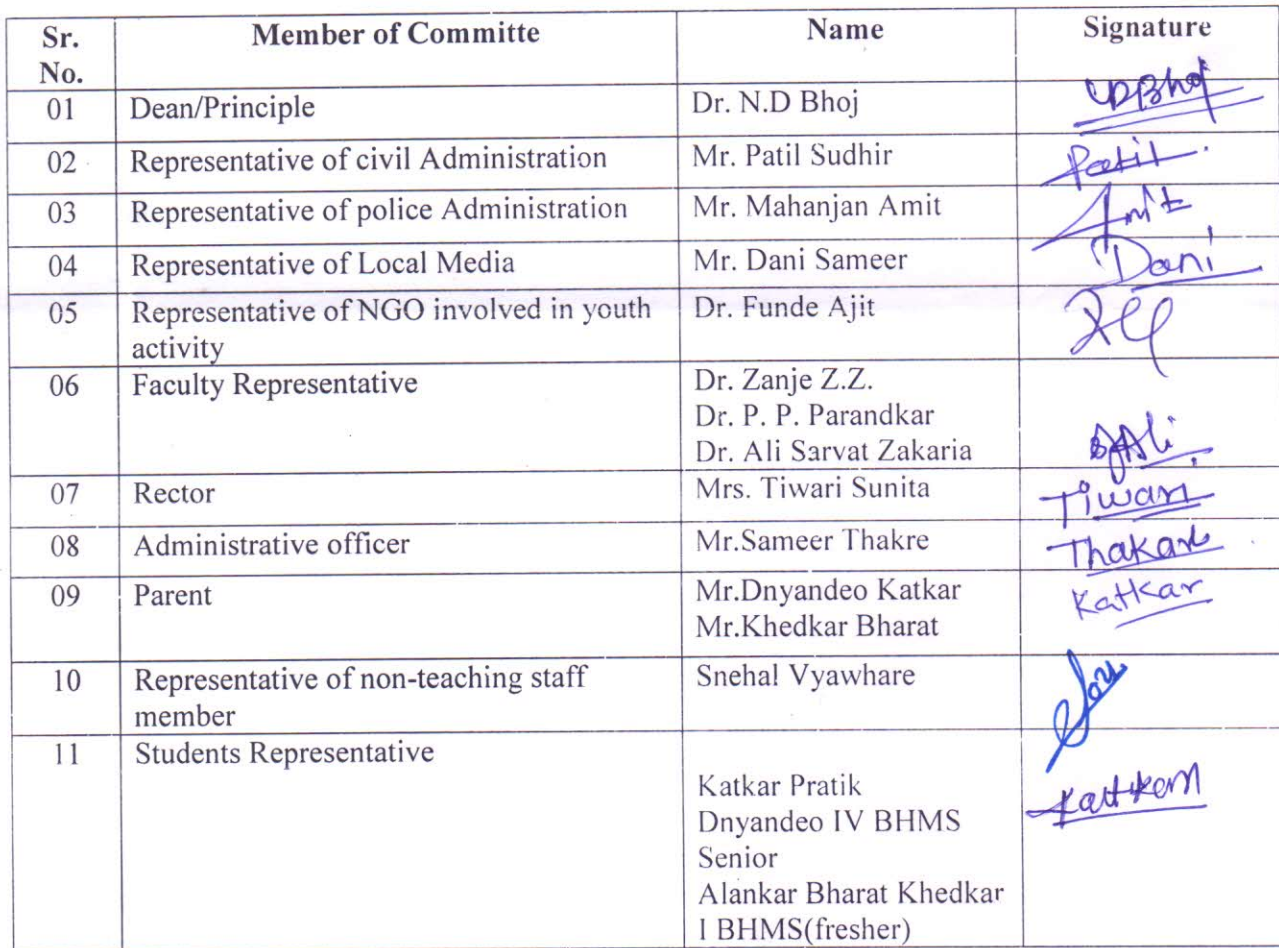 Sr. No. Member of Committe Name Signature
01 Dean/Principle Dr. N.D Bhoj NDBhoj
02 Representative of civil Administration Mr. Patil Sudhir Patil
03 Representative of police Administration Mr. Mahanjan Amit Amit
04 Representative of Local Media Mr. Dani Sameer Dani
05 Representative of NGO involved in youth Dr. Funde Ajit
activity
06 Faculty Representative Dr. Zanje Z.Z.
Dr. P. P. Parandkar
Dr. Ali Sarvat Zakaria
07 Rector Mrs. Tiwari Sunita Tiwari
08 Administrative officer Mr.Sameer Thakre Thakare
09 Parent Mr.Dnyandeo Katkar Katkar
Mr.Khedkar Bharat
10 Representative of non-teaching staff Snehal Vyawhare
member
11 Students Representative
Katkar Pratik
Dnyandeo IV BHMS
Senior
Alankar Bharat Khedkar
I BHMS(fresher)